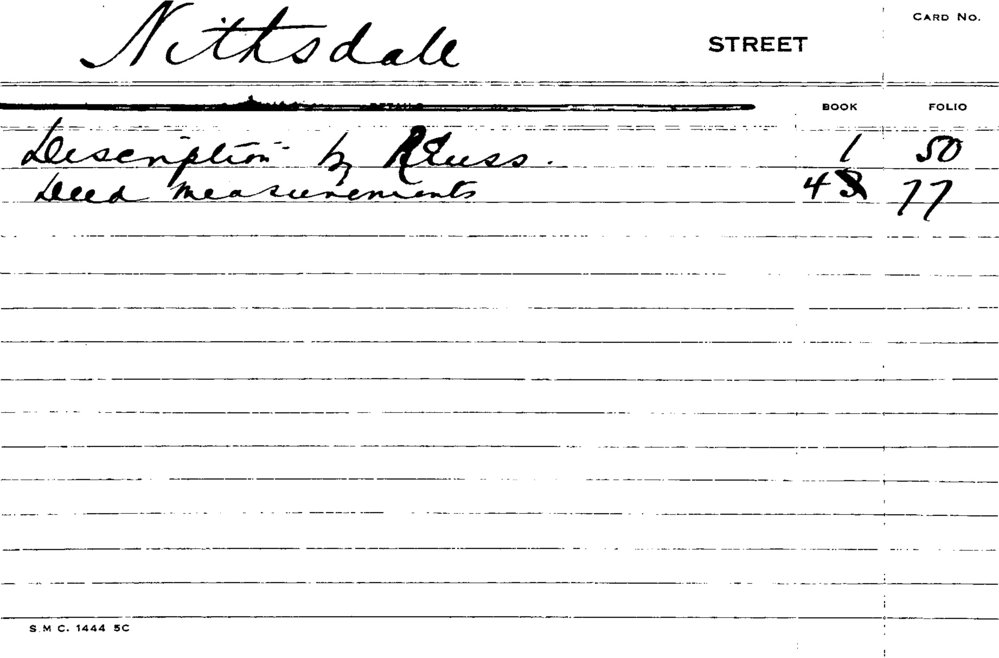 Nithsdale STREET CARD No.
DETAILS BOOK FOLIO
Description by Reuss. 1 50
Deed measurements 43 77
S.M.C. 1444 5C